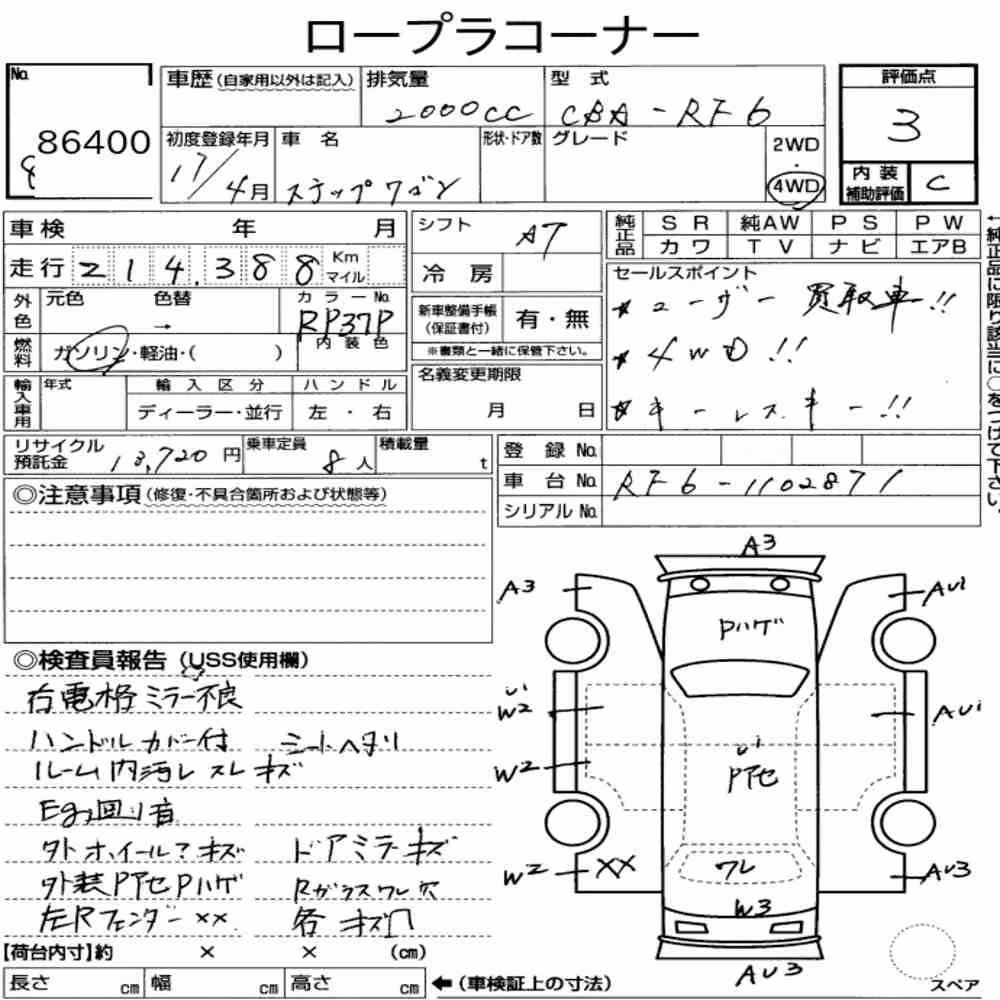 ロープラコーナー
No. 86400
8
車歴(自家用以外は記入) 排気量 2000cc 型式 CBA-RF6
評価点 3
初度登録年月 17/4月 車名 ステップワゴン 形状・ドア数 グレード 2WD・4WD
内装補助評価 C
車検 年 月
シフト AT
純正品 SR 純AW PS PW
カワ TV ナビ エアB
走行 214,388 Km マイル
冷房
セールスポイント
★ユーザー買取車!!
★4WD!!
★キーレスキー!!
外色 元色 色替 → カラーNo. RP37P
内装色
新車整備手帳(保証書付) 有・無
※書類と一緒に保管下さい。
燃料 ガソリン・軽油・( )
名義変更期限 月 日
輸入車用 年式 輸入区分 ハンドル
ディーラー・並行 左・右
←純正品に限り該当に○をつけて下さい。
リサイクル預託金 13,720円 乗車定員 8人 積載量 t
登録No.
車台No. RF6-1102871
シリアルNo.
◎注意事項(修復・不具合箇所および状態等)
◎検査員報告(USS使用欄)
右電格ミラー不良
ハンドルカバー付 シートヘタリ
ルーム内汚レスレキズ
Egヨリ回り音
外ホイールマキズ ドアミラーキズ
外装PアセPハゲ Rガラスワレ穴
左Rフェンダー×× 各キズ凹
【荷台内寸】約 × × (cm)
長さ cm 幅 cm 高さ cm ←(車検証上の寸法)
A3
A3
AUi
Pハゲ
Ui
W2
AUi
W2
Ui
Pアセ
W2
××
ワレ
AU3
W3
AU3
スペア